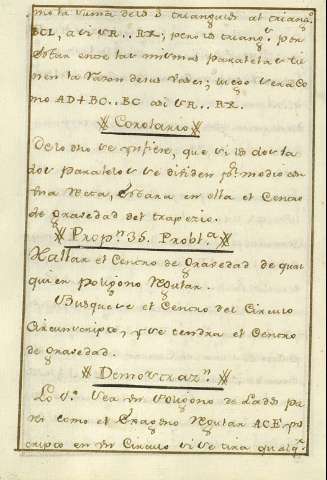 mo la suma de los 2 triangulos al triang.º
BCL, asi VR..RX; pero los triang.s por
estar entre las mismas paralelas tie
nen la razon de sus vases; luego sera co
mo AD+BC..BC asi VR..RX.
Corolario
De lo dho se infiere, que si los dos la
dos paralelos se dividen p.r medio con
una Recta, estara en ella el Centro
de gravedad del trapezio.
Prop.n 35. Probl.a
Hallar el Centro de Gravedad de qual
quier Poligono Regular.
Busquese el Centro del Circulo
Circunscripto, y se tendra el Centro
de gravedad.
Demostraz.n
Lo 1.º Sea un Poligono de Lados pa
res como el Exagono Regular ACE, ys
cripto en un Circulo si se tira qualq.r